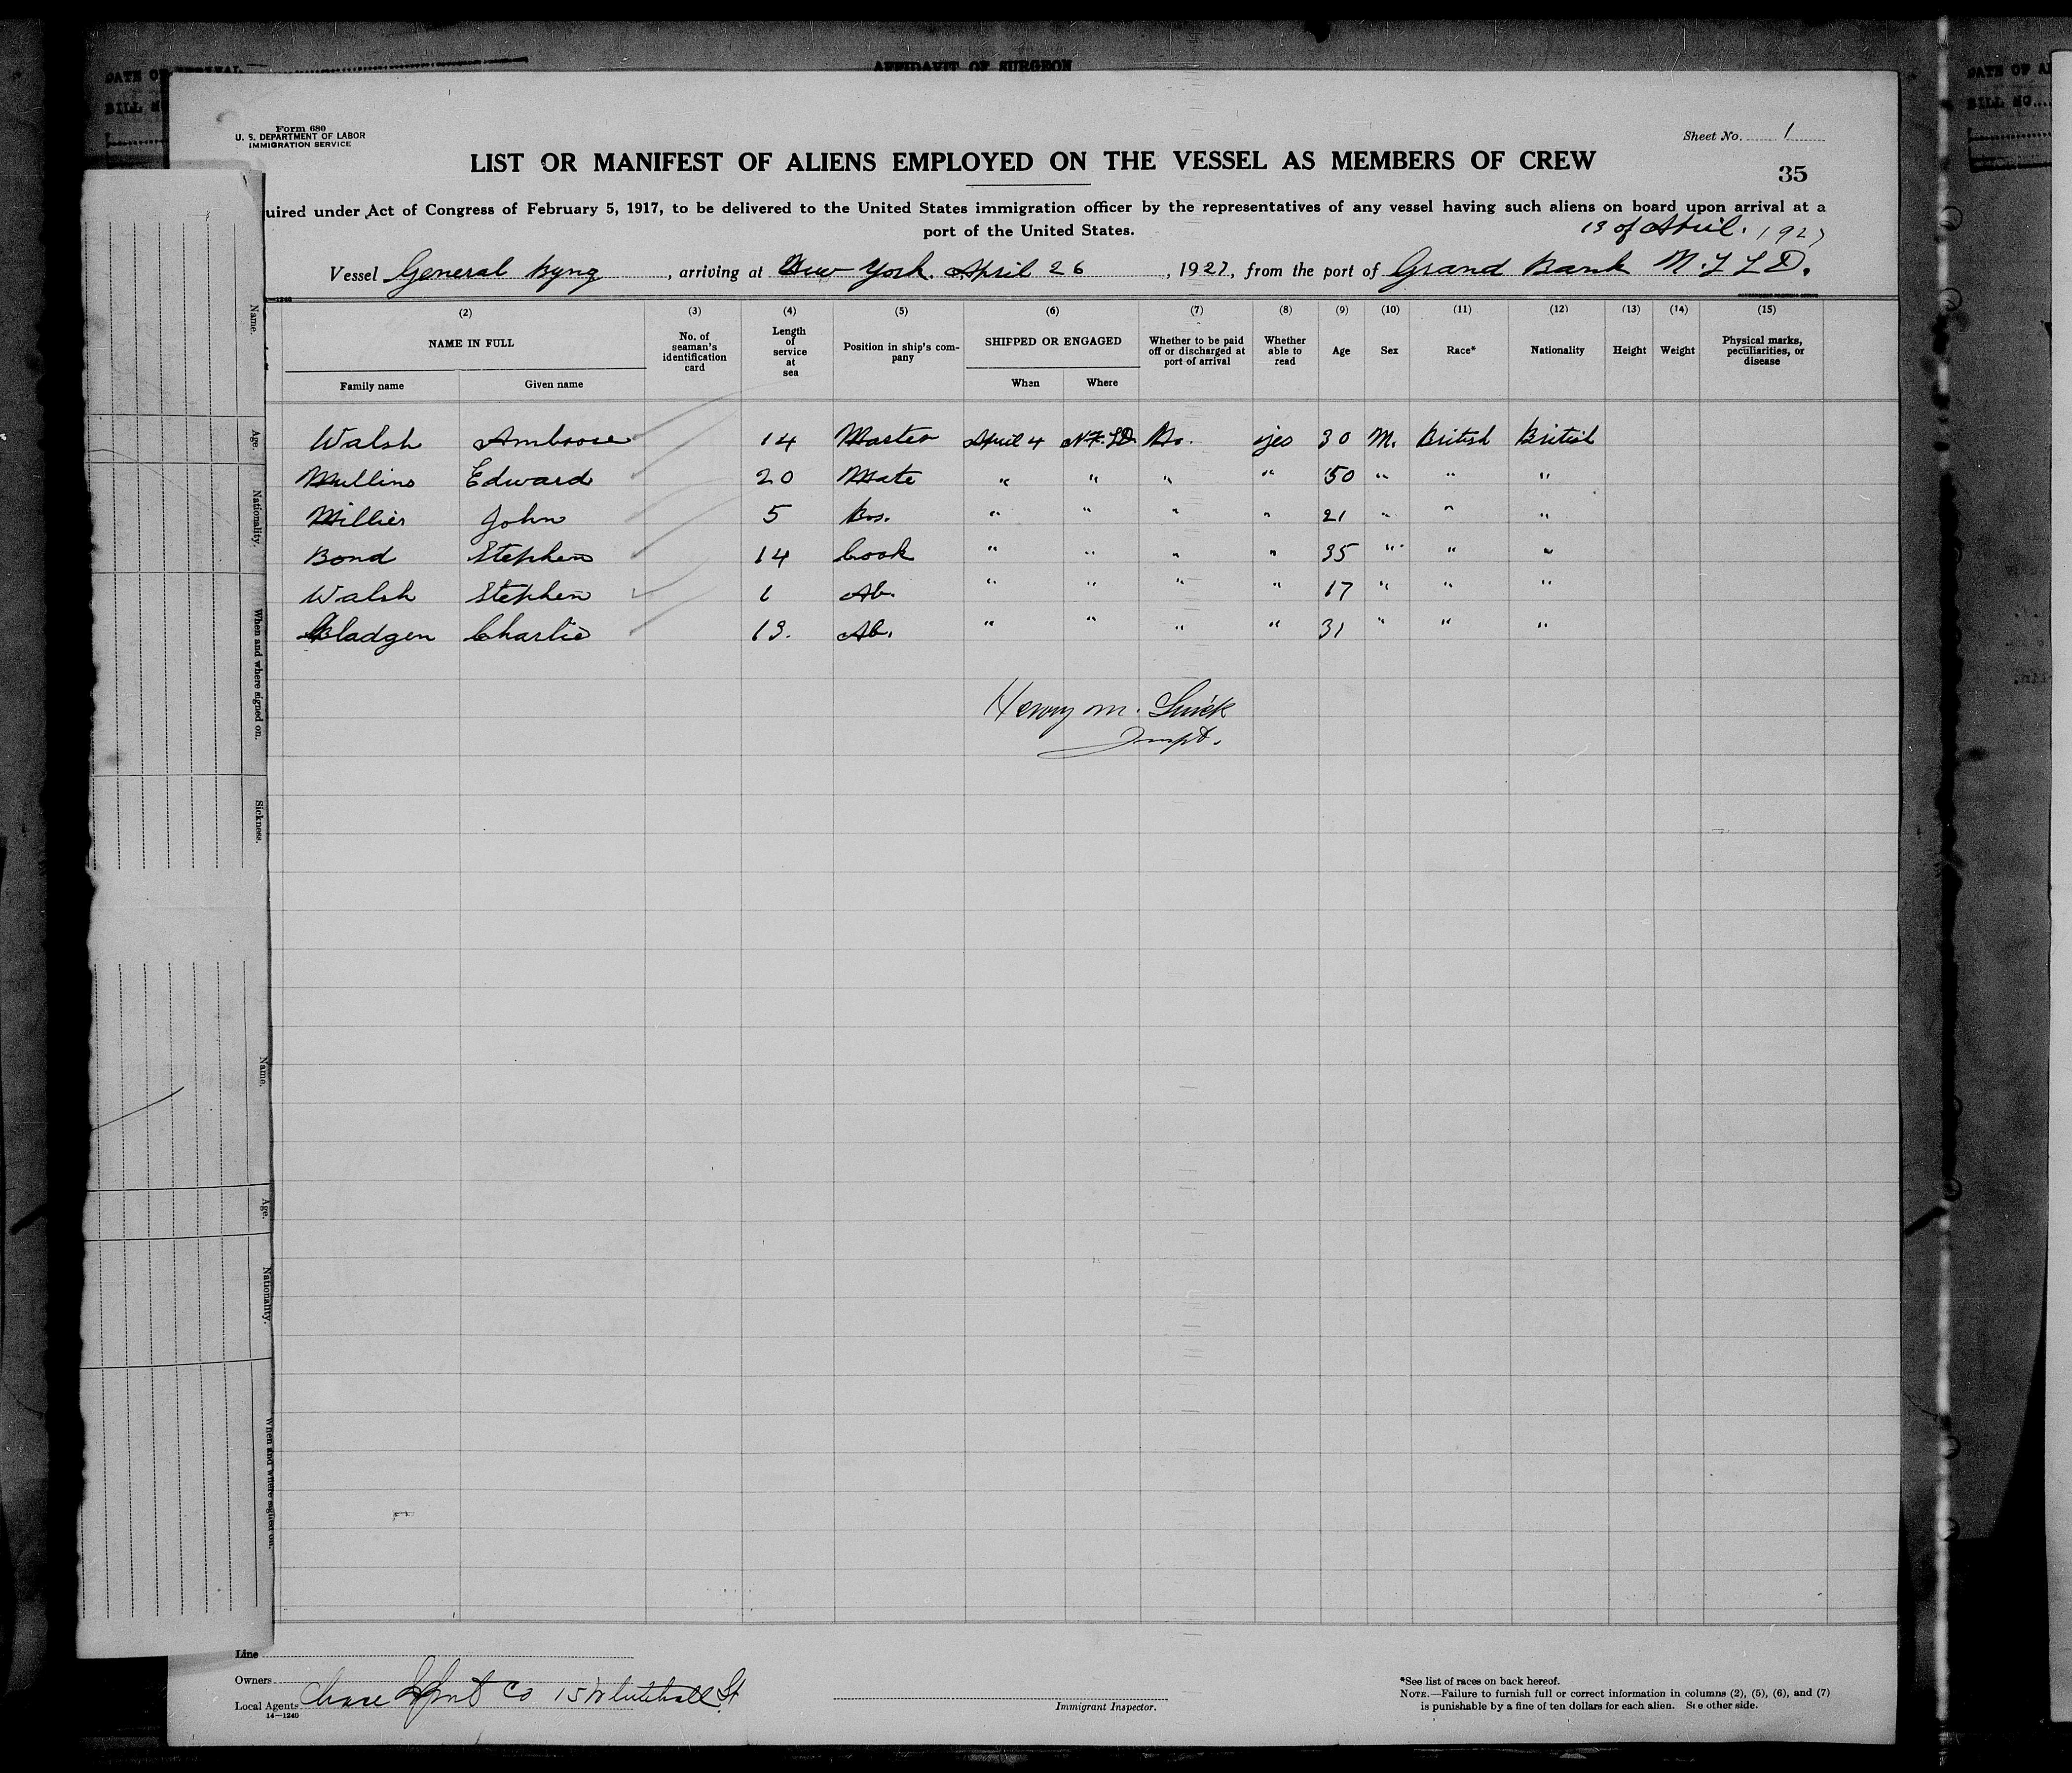 DATE OF ARRIVAL
BILL N
AFFIDAVIT OF SURGEON
DATE OF A
BILL NO.
Form 680
U. S. DEPARTMENT OF LABOR
IMMIGRATION SERVICE
Sheet No. 1
LIST OR MANIFEST OF ALIENS EMPLOYED ON THE VESSEL AS MEMBERS OF CREW
35
uired under Act of Congress of February 5, 1917, to be delivered to the United States immigration officer by the representatives of any vessel having such aliens on board upon arrival at a
port of the United States.
13 of April. 1927
Vessel General Byng, arriving at New York. April 26, 1927, from the port of Grand Bank N.F.L.D.
(2) (3) (4) (5) (6) (7) (8) (9) (10) (11) (12) (13) (14) (15)
NAME IN FULL
Family name Given name
No. of seaman's identification card
Length of service at sea
Position in ship's company
SHIPPED OR ENGAGED
When Where
Whether to be paid off or discharged at port of arrival
Whether able to read
Age
Sex
Race*
Nationality
Height
Weight
Physical marks, peculiarities, or disease
Walsh Ambrose 14 Master April 4 N.F.LD. No. yes 30 M. British British
Mullins Edward 20 Mate " " " " 50 " " "
Hillier John 5 Bos. " " " " 21 " " "
Bond Stephen 14 Cook " " " " 35 " " "
Walsh Stephen 1 Ab. " " " " 17 " " "
Bladgen Charlie 13. Ab. " " " " 31 " " "
Henry M.
Inspt.
Name.
Age.
Nationality.
When and where signed on.
Sickness.
Name.
Age.
Nationality.
When and where signed on.
Line
Owners
Local Agents Co 15 Whitehall St
14—1240
Immigrant Inspector.
*See list of races on back hereof.
NOTE.—Failure to furnish full or correct information in columns (2), (5), (6), and (7)
is punishable by a fine of ten dollars for each alien. See other side.